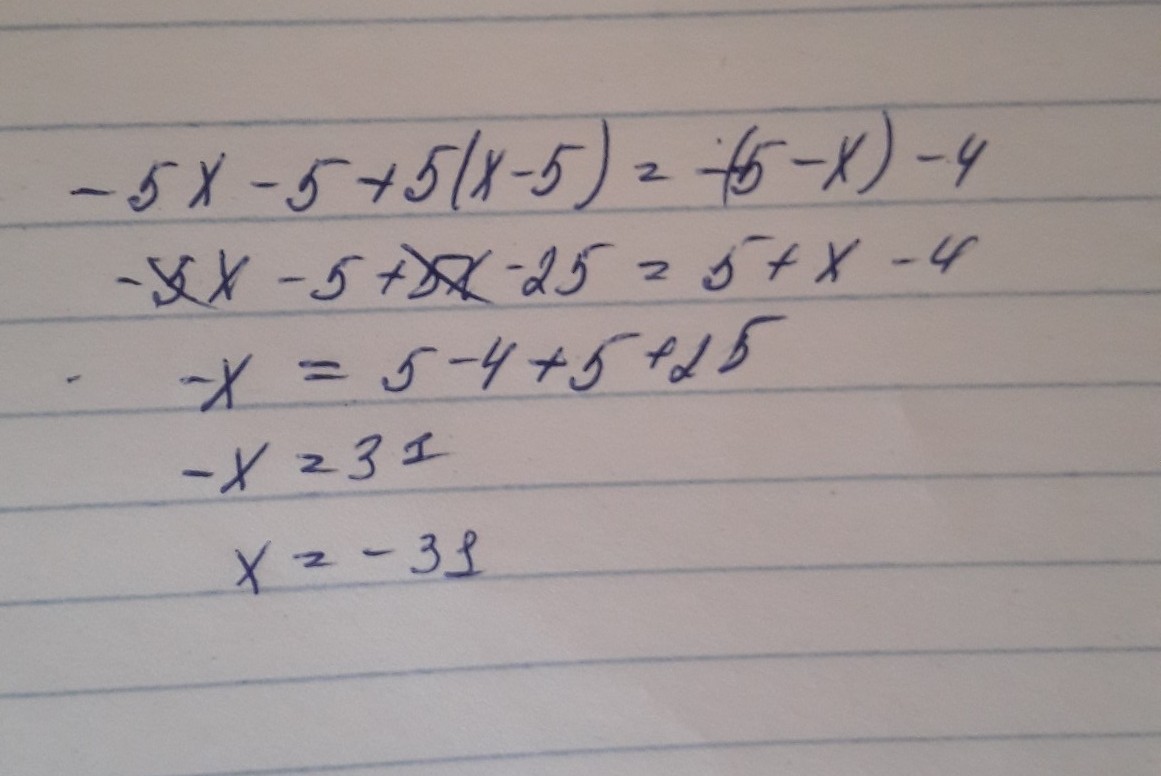 -5x-5+5(x-5)=-(5-x)-4
-5x-5+5x-25=5+x-4
-x=5-4+5+25
-x=31
x=-31